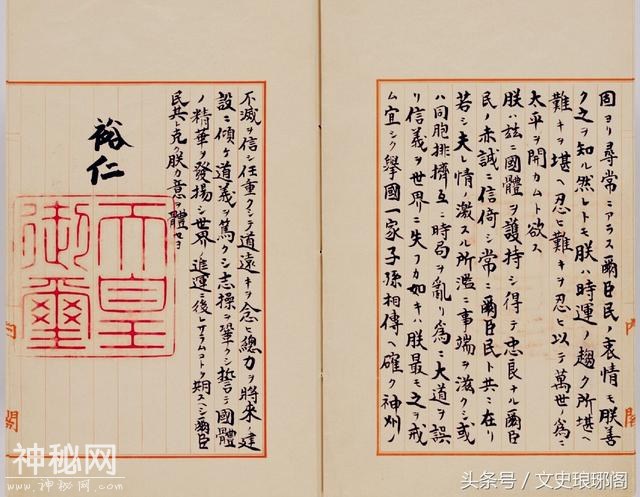 固ヨリ尋常ニアラス爾臣民ノ衷情モ朕善
ク之ヲ知ル然レトモ朕ハ時運ノ趨ク所堪ヘ
難キヲ堪ヘ忍ヒ難キヲ忍ヒ以テ萬世ノ爲ニ
太平ヲ開カムト欲ス
朕ハ茲ニ國體ヲ護持シ得テ忠良ナル爾臣
民ノ赤誠ニ信倚シ常ニ爾臣民ト共ニ在リ
若シ夫レ情ノ激スル所濫ニ事端ヲ滋クシ或
ハ同胞排擠互ニ時局ヲ亂リ爲ニ大道ヲ誤
リ信義ヲ世界ニ失フカ如キハ朕最モ之ヲ戒
ム宜シク擧國一家子孫相傳ヘ確ク神州ノ
不滅ヲ信シ任重クシテ道遠キヲ念ヒ總力ヲ將來ノ建
設ニ傾ケ道義ヲ篤クシ志操ヲ鞏クシ誓テ國體
ノ精華ヲ發揚シ世界ノ進運ニ後レサラムコトヲ期スヘシ爾臣
民其レ克ク朕カ意ヲ體セヨ
裕仁
天皇
御璽
神秘网
www.shenmi.com.cn
头条号 / 文史琅琊阁